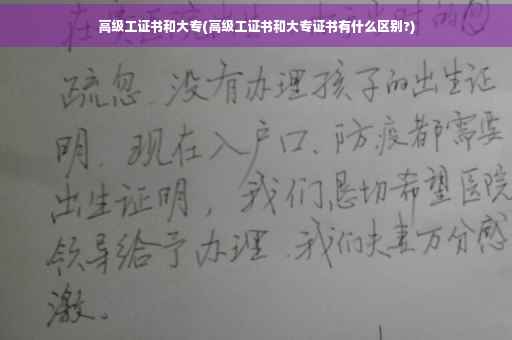 高级工证书和大专(高级工证书和大专证书有什么区别?)
疏忽、没有办理孩子的出生证
明、现在入户口、防疫都需要
出生证明，我们恳切希望医院
领导给予办理、我们夫妻万分感
激。